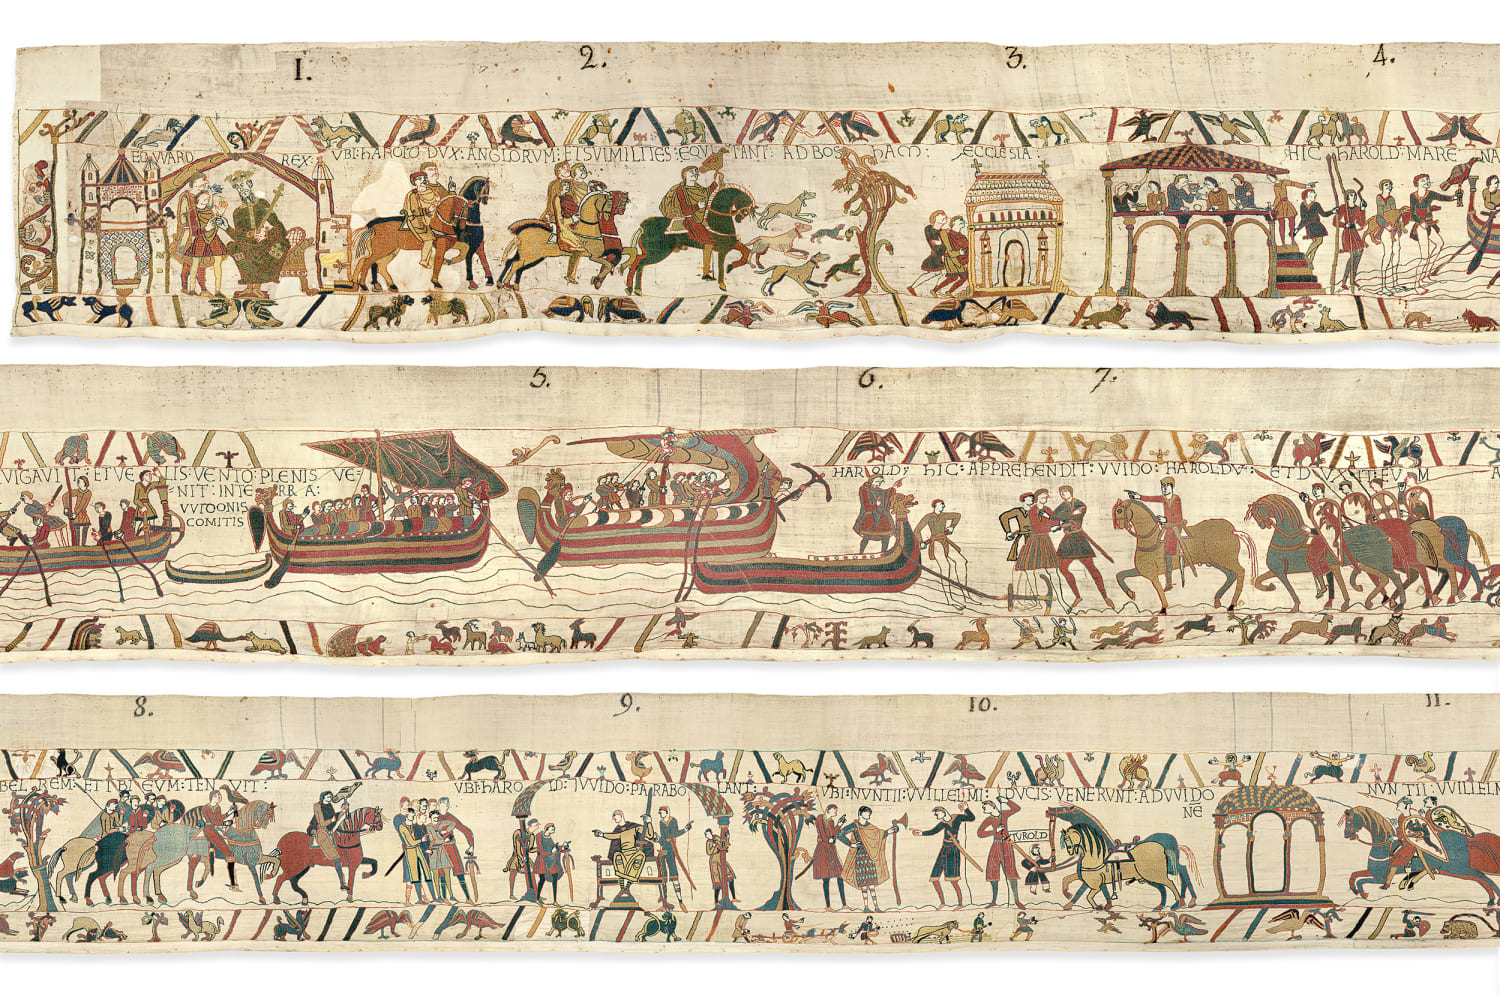 1. 2. 3. 4.
EDVVARD REX: VBI: HAROLD DVX: ANGLORVM: ET SVI MILITES: EQVITANT: AD BOSHAM: ECCLESIA: HIC HAROLD: MARE NA
5. 6. 7.
VIGAVIT: ET VELIS: VENTO: PLENIS VE-
NIT: IN TERRA:
VVIDONIS
COMITIS
HAROLD: HIC: APPREHENDIT: VVIDO: HAROLDV: ET DVXIT: EVM A
8. 9. 10. 11.
BELREM: ET IBI EVM: TENVIT:
VBI: HAROLD: 7 VVIDO: PARABOLANT:
VBI: NVNTII: VVILLELMI: DVCIS: VENERVNT: AD VVIDO
NE
TVROLD
NVNTII: VVILLELM